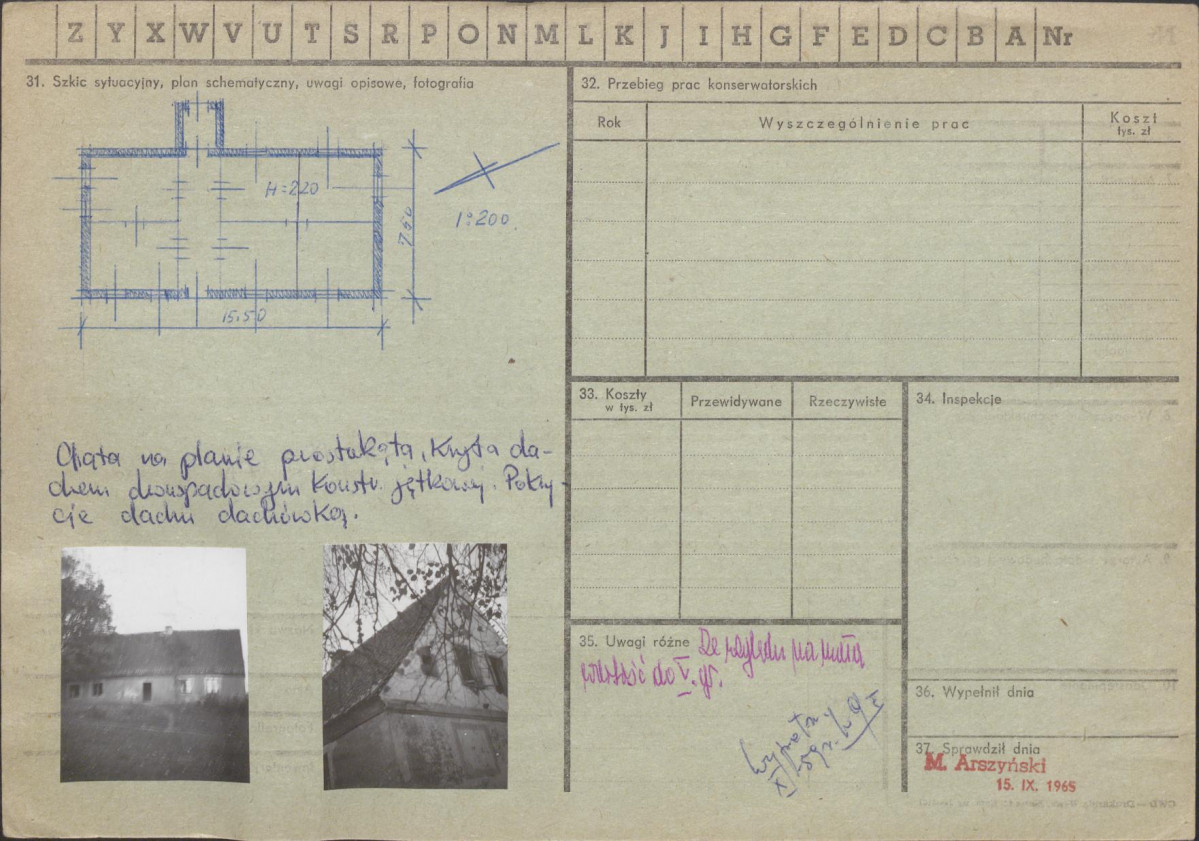 Z Y X W V U T S R P O N M L K J I H G F E D C B A Nr
31. Szkic sytuacyjny, plan schematyczny, uwagi opisowe, fotografia
H=220
7,50
1:200
15,50
Chata na planie prostokąta, Kryta da-
chem dwuspadowym Konstr. jętkowej. Pokry-
cie dachu dachówką.
32. Przebieg prac konserwatorskich
Rok
Wyszczególnienie prac
Koszt
tys. zł
33. Koszty
w tys. zł
Przewidywane
Rzeczywiste
34. Inspekcje
35. Uwagi różne Ze względu na małą
wartość do V. gr.
36. Wypełnił dnia
37. Sprawdził dnia
M. Arszyński
15. IX. 1965